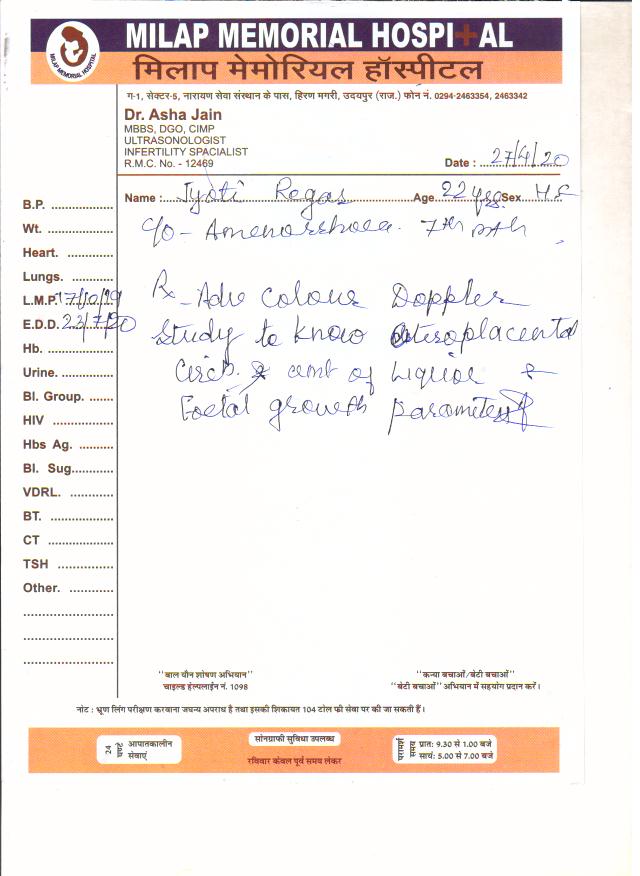 MILAP MEMORIAL HOSPITAL
मिलाप मेमोरियल हॉस्पीटल
MILAP MEMORIAL HOSPITAL
ग-1, सेक्टर-5, नारायण सेवा संस्थान के पास, हिरण मगरी, उदयपुर (राज.) फोन नं. 0294-2463354, 2463342
Dr. Asha Jain
MBBS, DGO, CIMP
ULTRASONOLOGIST
INFERTILITY SPACIALIST
R.M.C. No. - 12469
Date : 27/4/20
Name : Jyoti Regas Age 22 yrs. Sex H F
c/o - Amenorrhoea. 7th mth
Rx - Adv Colour Doppler
study to know uteroplacental
Circ. & amt of Liquor &
Foetal growth parameters
B.P. ................
Wt. ................
Heart. .............
Lungs. ............
L.M.P. 17/10/19
E.D.D. 23/7/20
Hb. ................
Urine. .............
Bl. Group. .......
HIV ................
Hbs Ag. ..........
Bl. Sug............
VDRL. ............
BT. ................
CT ................
TSH ...............
Other. ............
"बाल यौन शोषण अभियान"
चाइल्ड हेल्पलाईन नं. 1098
"कन्या बचाओं/बेटी बचाओं"
"बेटी बचाओं" अभियान में सहयोग प्रदान करें।
नोट : भ्रूण लिंग परीक्षण करवाना जघन्य अपराध है तथा इसकी शिकायत 104 टोल फ्री सेवा पर की जा सकती हैं।
24 घण्टे आपातकालीन सेवाएं
सोनोग्राफी सुविधा उपलब्ध
रविवार केवल पूर्व समय लेकर
परामर्श समय प्रात: 9.30 से 1.00 बजे
सायं: 5.00 से 7.00 बजे